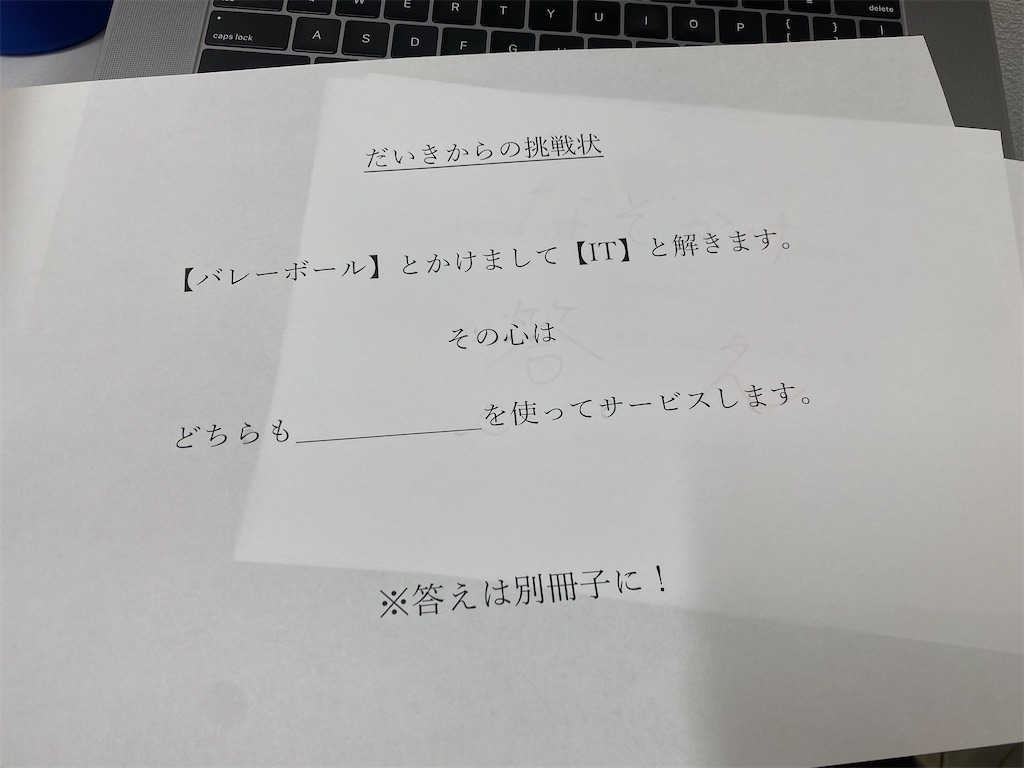 W E R T Y U I O P { [ } ] | delete
caps lock A S D F G
だいきからの挑戦状
なぞかけ
【バレーボール】とかけまして【IT】と解きます。
その心は
答え
どちらも＿＿＿＿＿＿＿を使ってサービスします。
※答えは別冊子に！